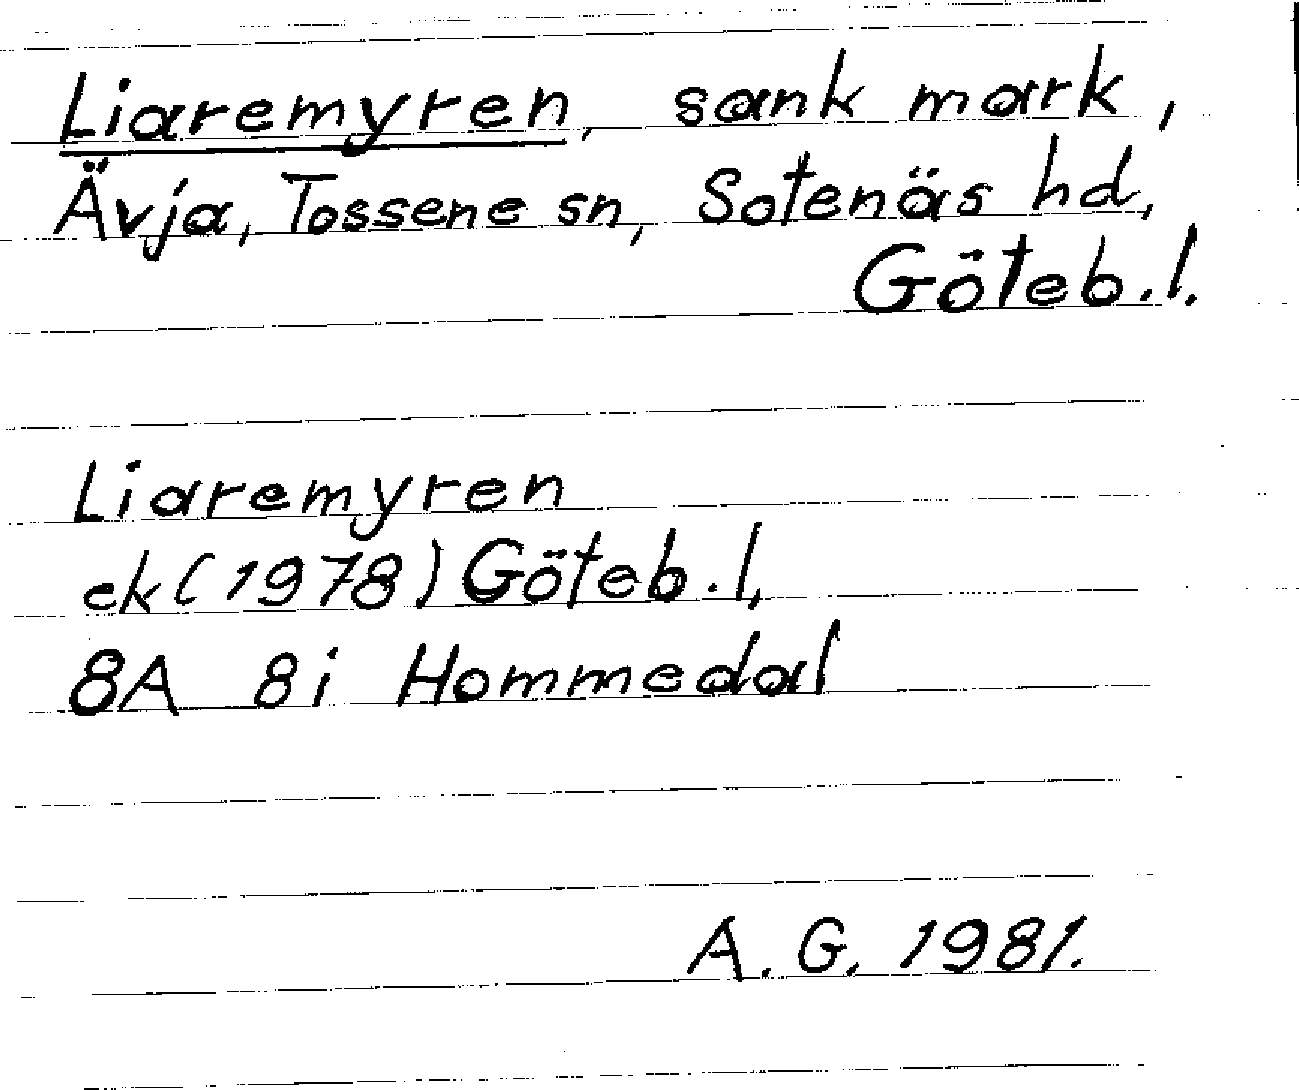 Liaremyren, sank mark,
Ävja, Tossene sn, Sotenäs hd,
Göteb.l.
Liaremyren
ek (1978) Göteb.l,
8A 8i Hommedal
A.G. 1981.